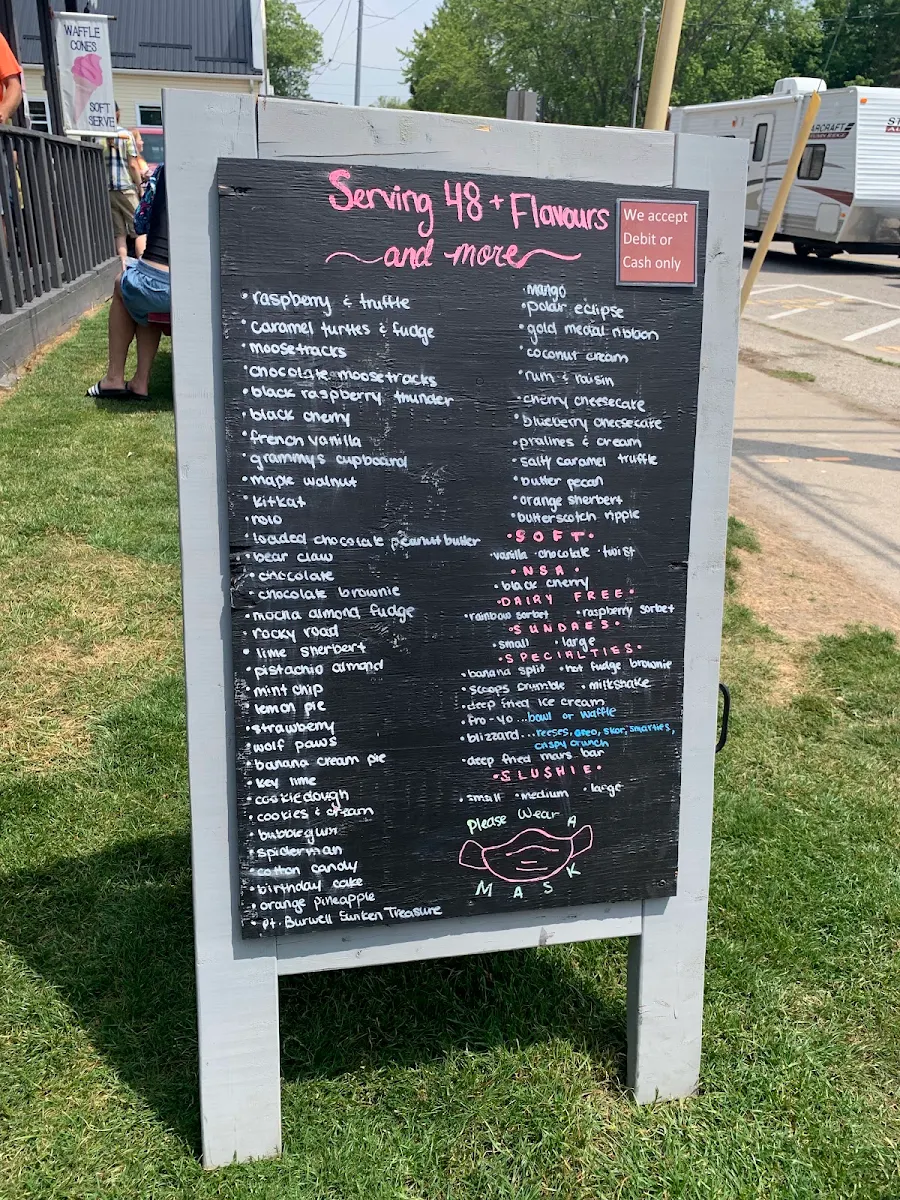 WAFFLE
CONES
SOFT
SERVE
STARCRAFT
Serving 48+ Flavours
~and more~
We accept
Debit or
Cash only
• raspberry & truffle
• caramel turtles & fudge
• moosetracks
• chocolate moosetracks
• black raspberry thunder
• black cherry
• french vanilla
• grammy's cupboard
• maple walnut
• kitkat
• rolo
• loaded chocolate peanutbutter
• bear claw
• chocolate
• chocolate brownie
• mocha almond fudge
• rocky road
• lime sherbert
• pistachio almond
• mint chip
• lemon pie
• strawberry
• wolf paws
• banana cream pie
• key lime
• cookiedough
• cookies & cream
• bubblegum
• spiderman
• cotton candy
• birthday cake
• orange pineapple
• Pt. Burwell Sunken Treasure
• mango
• polar eclipse
• gold medal ribbon
• coconut cream
• rum & raisin
• cherry cheesecake
• blueberry cheesecake
• pralines & cream
• salty caramel truffle
• butter pecan
• orange sherbert
• butterscotch ripple
• SOFT •
• vanilla • chocolate • twist
• NSA •
• black cherry
• DAIRY FREE •
• rainbow sorbet • raspberry sorbet
• SUNDAES •
• small • large
• SPECIALTIES •
• banana split • hot fudge brownie
• scoops crumble • milkshake
• deep fried ice cream
• fro-yo...bowl or waffle
• blizzard...reeses, oreo, skor, smarties,
crispy crunch
• deep fried mars bar
• SLUSHIE •
• small • medium • large
Please Wear A
MASK